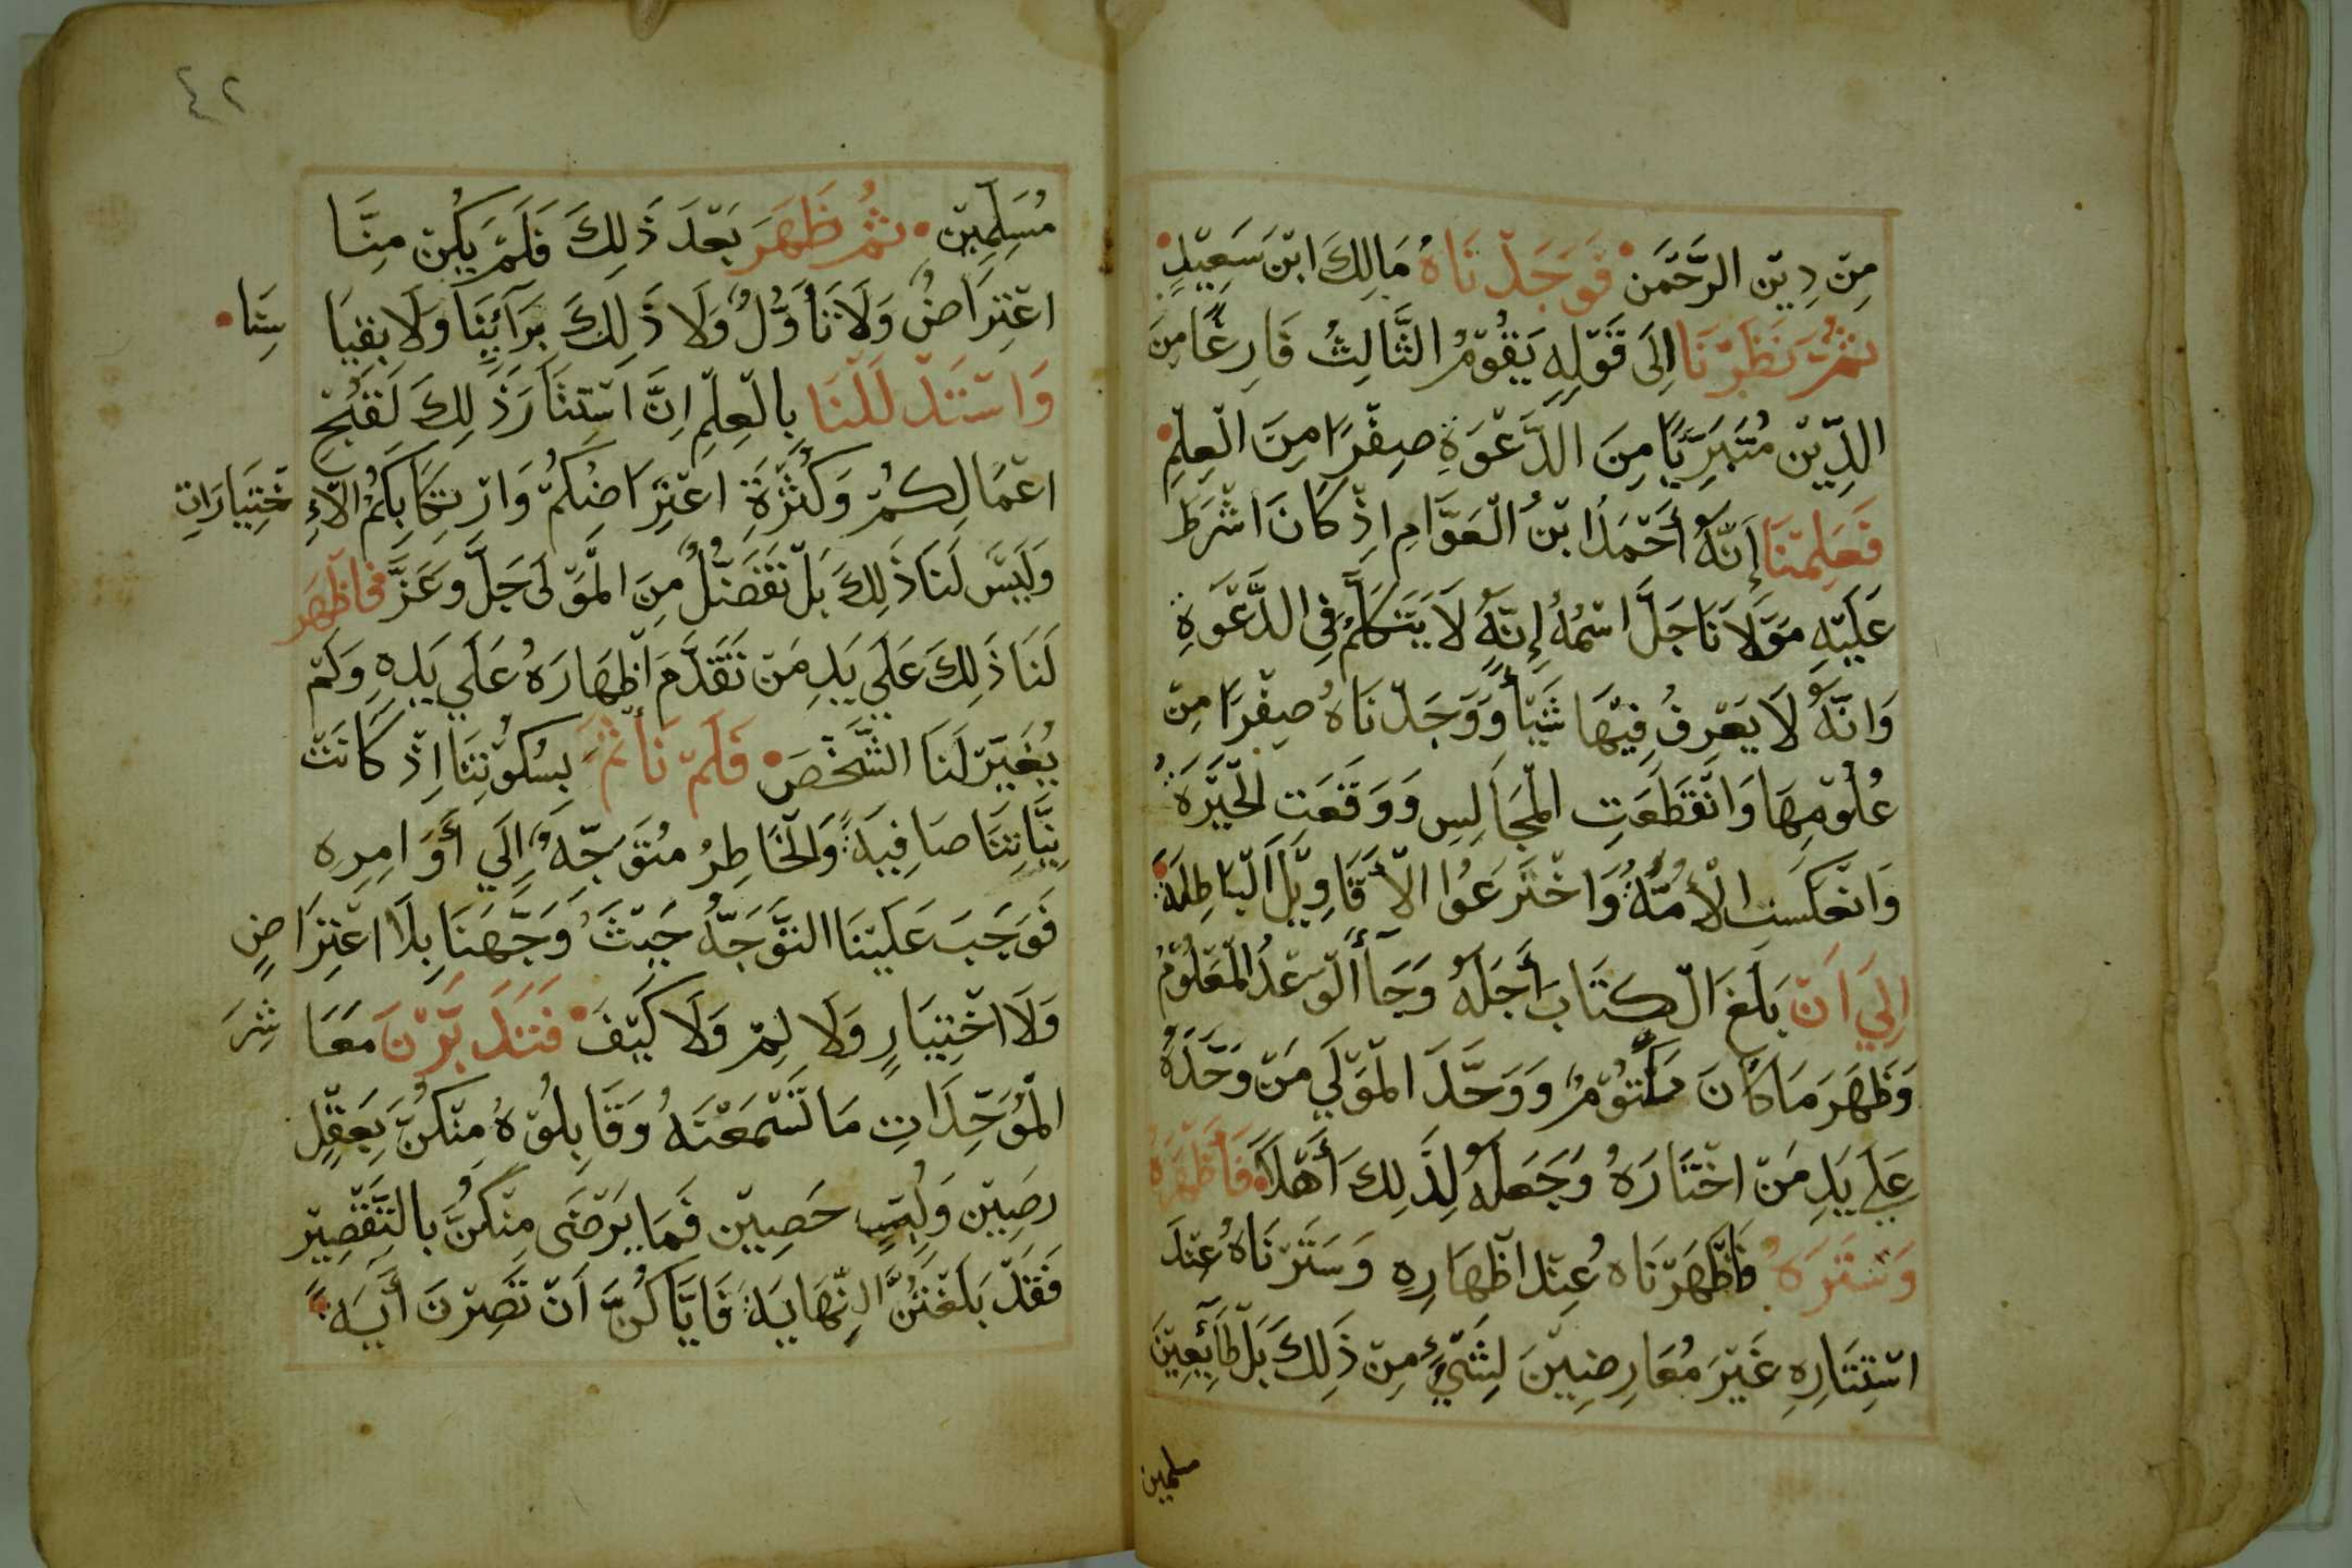 مِنْ دِيْنِ الرَّحْمَنِ فَوَجَدْنَاهُ مَالِكَ ابْنَ سَعِيْدٍ
ثُمَّ نَظَرْنَا اِلَى قَوْلِهِ يَقُوْمُ الثَّالِثُ فَارِغًا مِنَ
الدِّيْنِ مُتَبَرِّيًا مِنَ الدَّعْوَةِ صِفْرًا مِنَ الْعِلْمِ
فَعَلِمْنَا إِنَّهُ أَحْمَدُ ابْنُ الْعَوَّامِ اِذْ كَانَ اشْرَطَ
عَلَيْهِ مَوْلَانَا جَلَّ اسْمُهُ إِنَّهُ لَا يَتَكَلَّمُ فِي الدَّعْوَةِ
وَانَّهُ لَا يَعْرِفُ فِيْهَا شَيْأً وَوَجَدْنَاهُ صِفْرًا مِنْ
عُلُوْمِهَا وَانْقَطَعَتِ الْمَجَالِسِ وَوَقَعَتِ الْحَيْرَةُ
وَانْعَكَسَتِ الْأُمَّةُ وَاخْتَرَعُوا الْأَقَاوِيْلَ الْبَاطِلَةَ
اِلَي اَنْ بَلَغَ الْكِتَابَ أَجَلَهُ وَجَآأَ الْوَعْدُ الْمَعْلُوْمُ
وَظَهَرَ مَا كَانَ مَكْتُوْمٌ وَوَحَّدَ الْمَوْلَي مَنْ وَحَّدَهُ
عَلَي يَدِ مَنْ اخْتَارَهُ وَجَعَلَهُ لِذَلِكَ أَهْلًا فَأَظْهَرَهُ
وَسَتَرَهُ فَأَظْهَرْنَاهُ عِنْدَ اظْهَارِهِ وَسَتَرْنَاهُ عِنْدَ
اسْتِتَارِهِ غَيْرَ مُعَارِضِيْنَ لِشَيْءٍ مِنْ ذَلِكَ بَلْ طَآئِعِيْنَ
مسلمين
٤٢
مُسَلِّمِيْنِ ثُمَّ ظَهَرَ بَعْدَ ذَلِكَ فَلَمْ يَكُنْ مِنَّا
اعْتِرَاضٌ وَلَا تَأَوُّلٌ وَلَا ذَلِكَ بِرَآئِيِنَا وَلَا بِقِيَا سِنَا
وَاسْتَدْلَلْنَا بِالْعِلْمِ اِنَّ اسْتِتَارَ ذَلِكَ لَقُبْحِ
اعْمَالِكُمْ وَكَثْرَةِ اعْتِرَاضِكُمْ وَارْتِكَابِكُمُ الْاءِ خْتِيَارَاتِ
وَلَيْسَ لَنَا ذَلِكَ بَلْ تَفَضُّلٌ مِنَ الْمَوْلَى جَلَّ وَعَزَّ فَاظْهَرَ
لَنَا ذَلِكَ عَلَي يَدِ مَنْ تَقَدَّمَ اظْهَارَهُ عَلَي يَدِهِ وَلَمْ
يُغَيِّرْ لَنَا الشَّخْصَ فَلَمْ نَأْثَمْ بِسُكُوْتِنَا اِذْ كَانَتْ
نِيَّاتِنَا صَافِيَةً وَالْخَاطِرُ مُتَوَجِّهٌ إِلَي أَوَامِرِهِ
فَوَجَبَ عَلَيْنَا التَّوَجُّهُ حَيْثُ وَجَّهَنَا بِلَا اعْتِرَاضٍ
وَلَا اخْتِيَارٍ وَلَا لِمْ وَلَا كَيْفَ فَتَدَبَّرْنَ مَعَا شِرَ
الْمُوَحِّدَاتِ مَا تَسْمَعْنَهُ وَقَابِلُوْهُ مِنْكُنَّ بِعَقْلٍ
رَصِيْنٍ وَلُبٍّ حَصِيْنٍ فَمَا يَرْضَى مِنْكُنَّ بِالتَّقْصِيْرِ
فَقَدْ بَلَغْتُنَّ النِّهَايَةَ فَايَّاكُنَّ اَنْ تَصِرْنَ أَيَةً